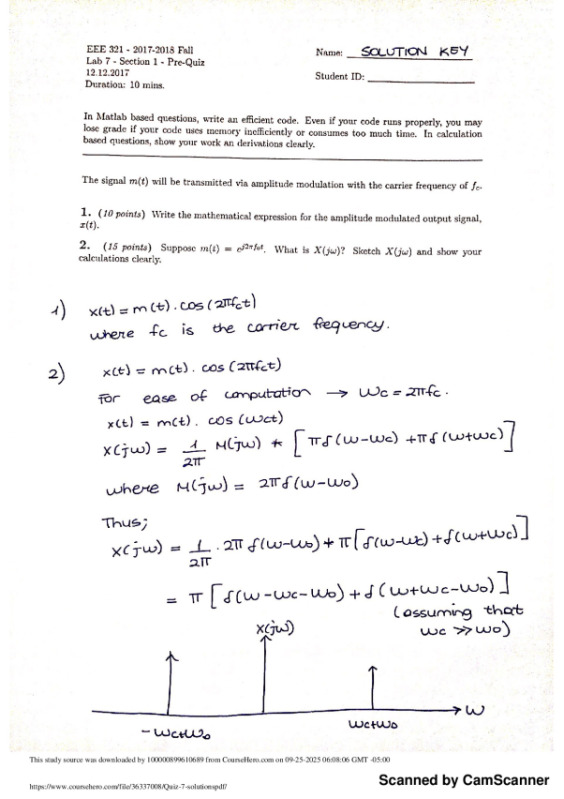 EEE 321 - 2017-2018 Fall
Lab 7 - Section 1 - Pre-Quiz
12.12.2017
Duration: 10 mins.
Name: SOLUTION KEY
Student ID:
In Matlab based questions, write an efficient code. Even if your code runs properly, you may
lose grade if your code uses memory inefficiently or consumes too much time. In calculation
based questions, show your work an derivations clearly.
The signal m(t) will be transmitted via amplitude modulation with the carrier frequency of f_c.
1. (10 points) Write the mathematical expression for the amplitude modulated output signal,
x(t).
2. (15 points) Suppose m(t) = e^{j2πf₀t}. What is X(jω)? Sketch X(jω) and show your
calculations clearly.
1) x(t) = m(t) . cos(2πfct)
where fc is the carrier frequency.
2) x(t) = m(t) . cos(2πfct)
for ease of computation → Wc = 2πfc.
x(t) = m(t) . cos(Wct)
X(jw) = 1/2π M(jw) * [πδ(w-wc) + πδ(w+wc)]
where M(jw) = 2πδ(w-w0)
Thus;
X(jw) = 1/2π . 2π δ(w-w0) * π[δ(w-wc) + δ(w+wc)]
= π [δ(w-wc-w0) + δ(w+wc-w0)]
(assuming that
wc >> w0)
X(jw)
w
-wc+w0
wc+w0
This study source was downloaded by 100000899610689 from CourseHero.com on 09-25-2025 06:08:06 GMT -05:00
https://www.coursehero.com/file/36337008/Quiz-7-solutionspdf/
Scanned by CamScanner